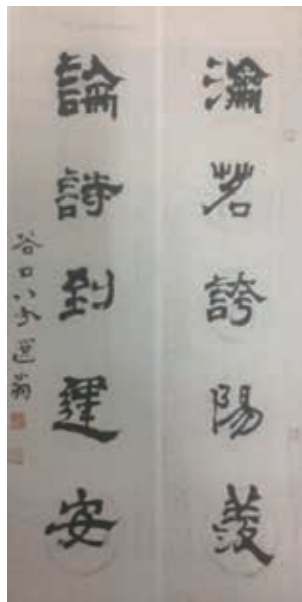 瀹茗誇陽羨
論詩到建安
谷口八分翁